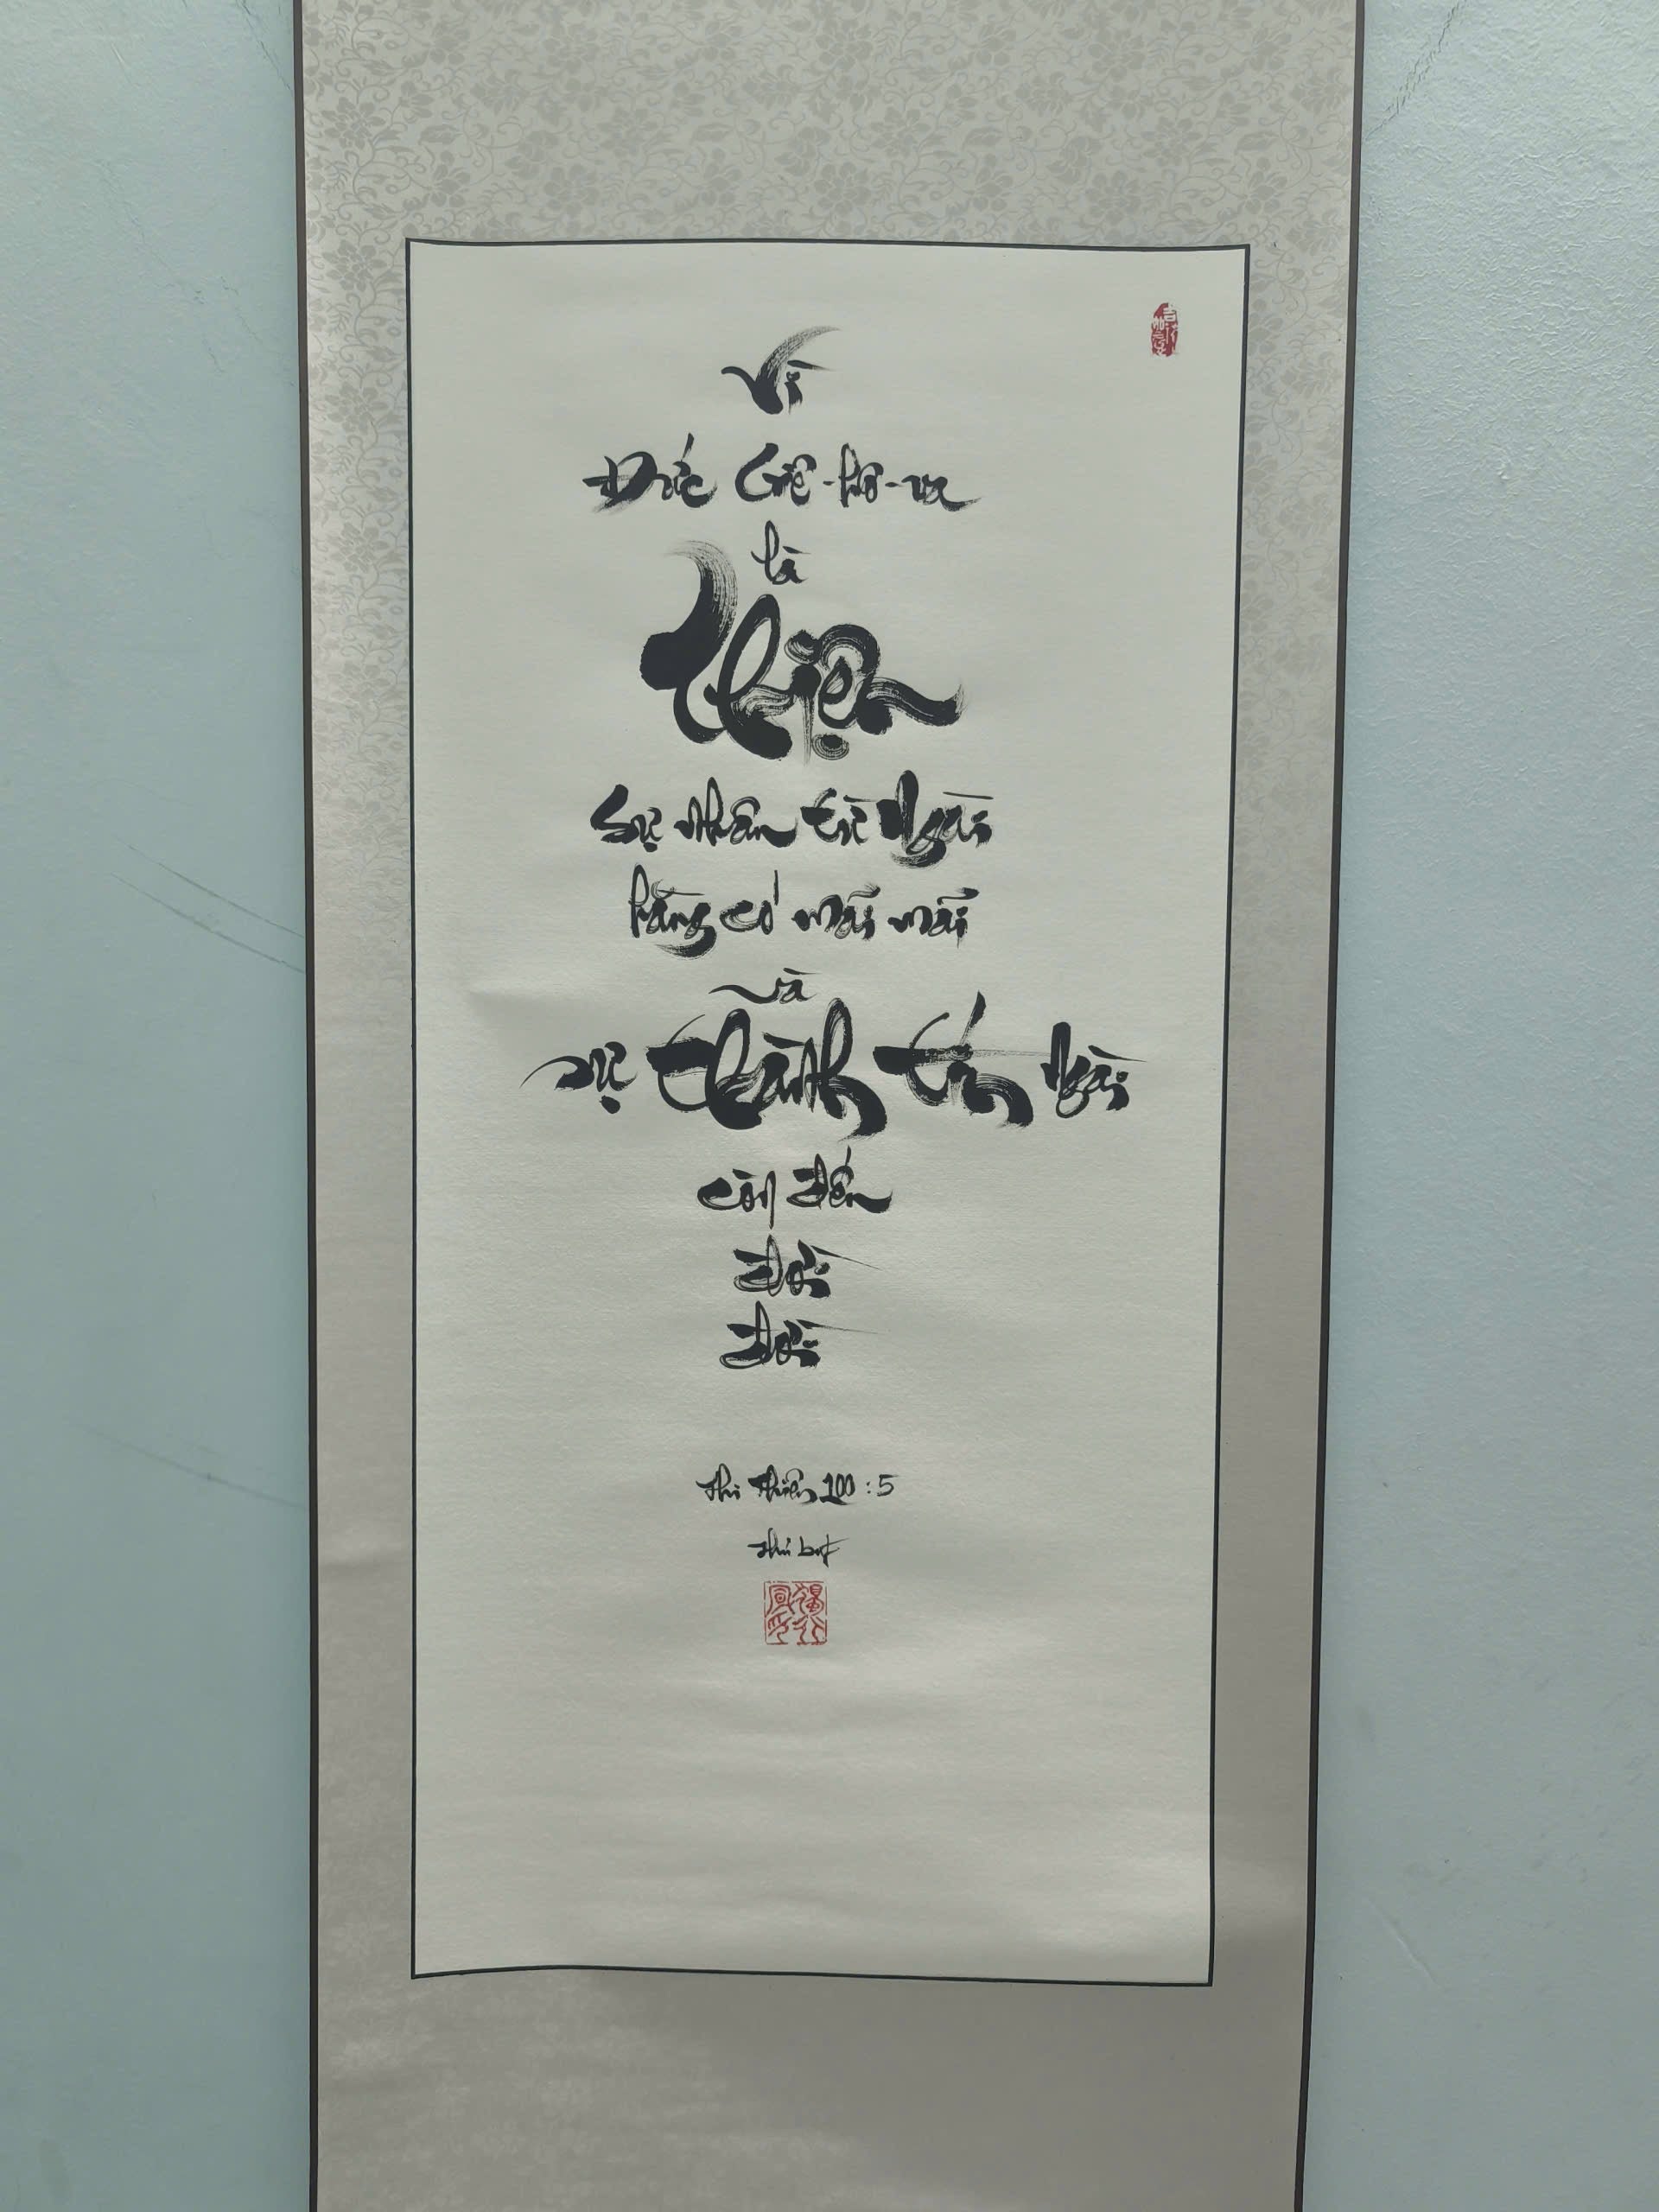 Vì
Đức Giê-hô-va
là
Thiện
Sự nhân từ Ngài
hằng có mãi mãi
và
sự thành tín Ngài
còn đến
đời
đời
Thi Thiên 100:5